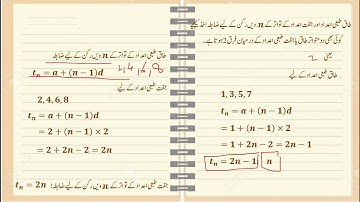 طاق طبعی اعداد اور جفت طبعی اعداد کے تواتر کے n ویں رکن کے لیے ضابطہ اخذ کیجئے
کوئی بھی دو متواتر طاق یا جفت طبعی اعداد کے درمیان فرق 2 ہوتا ہے۔
یعنی 2
طاق طبعی اعداد کے لیے
1, 3, 5, 7
tₙ = a + (n − 1)d
= 1 + (n − 1) × 2
= 1 + 2n − 2 = 2n − 1
tₙ = 2n − 1 n
طاق طبعی اعداد کے تواتر کے n ویں رکن کے لیے ضابطہ
tₙ = a + (n − 1)d
2,4,6,8
جفت طبعی اعداد کے لیے
2, 4, 6, 8
tₙ = a + (n − 1)d
= 2 + (n − 1) × 2
= 2 + 2n − 2 = 2n
جفت طبعی اعداد کے تواتر کے n ویں رکن کے لیے ضابطہ: tₙ = 2n